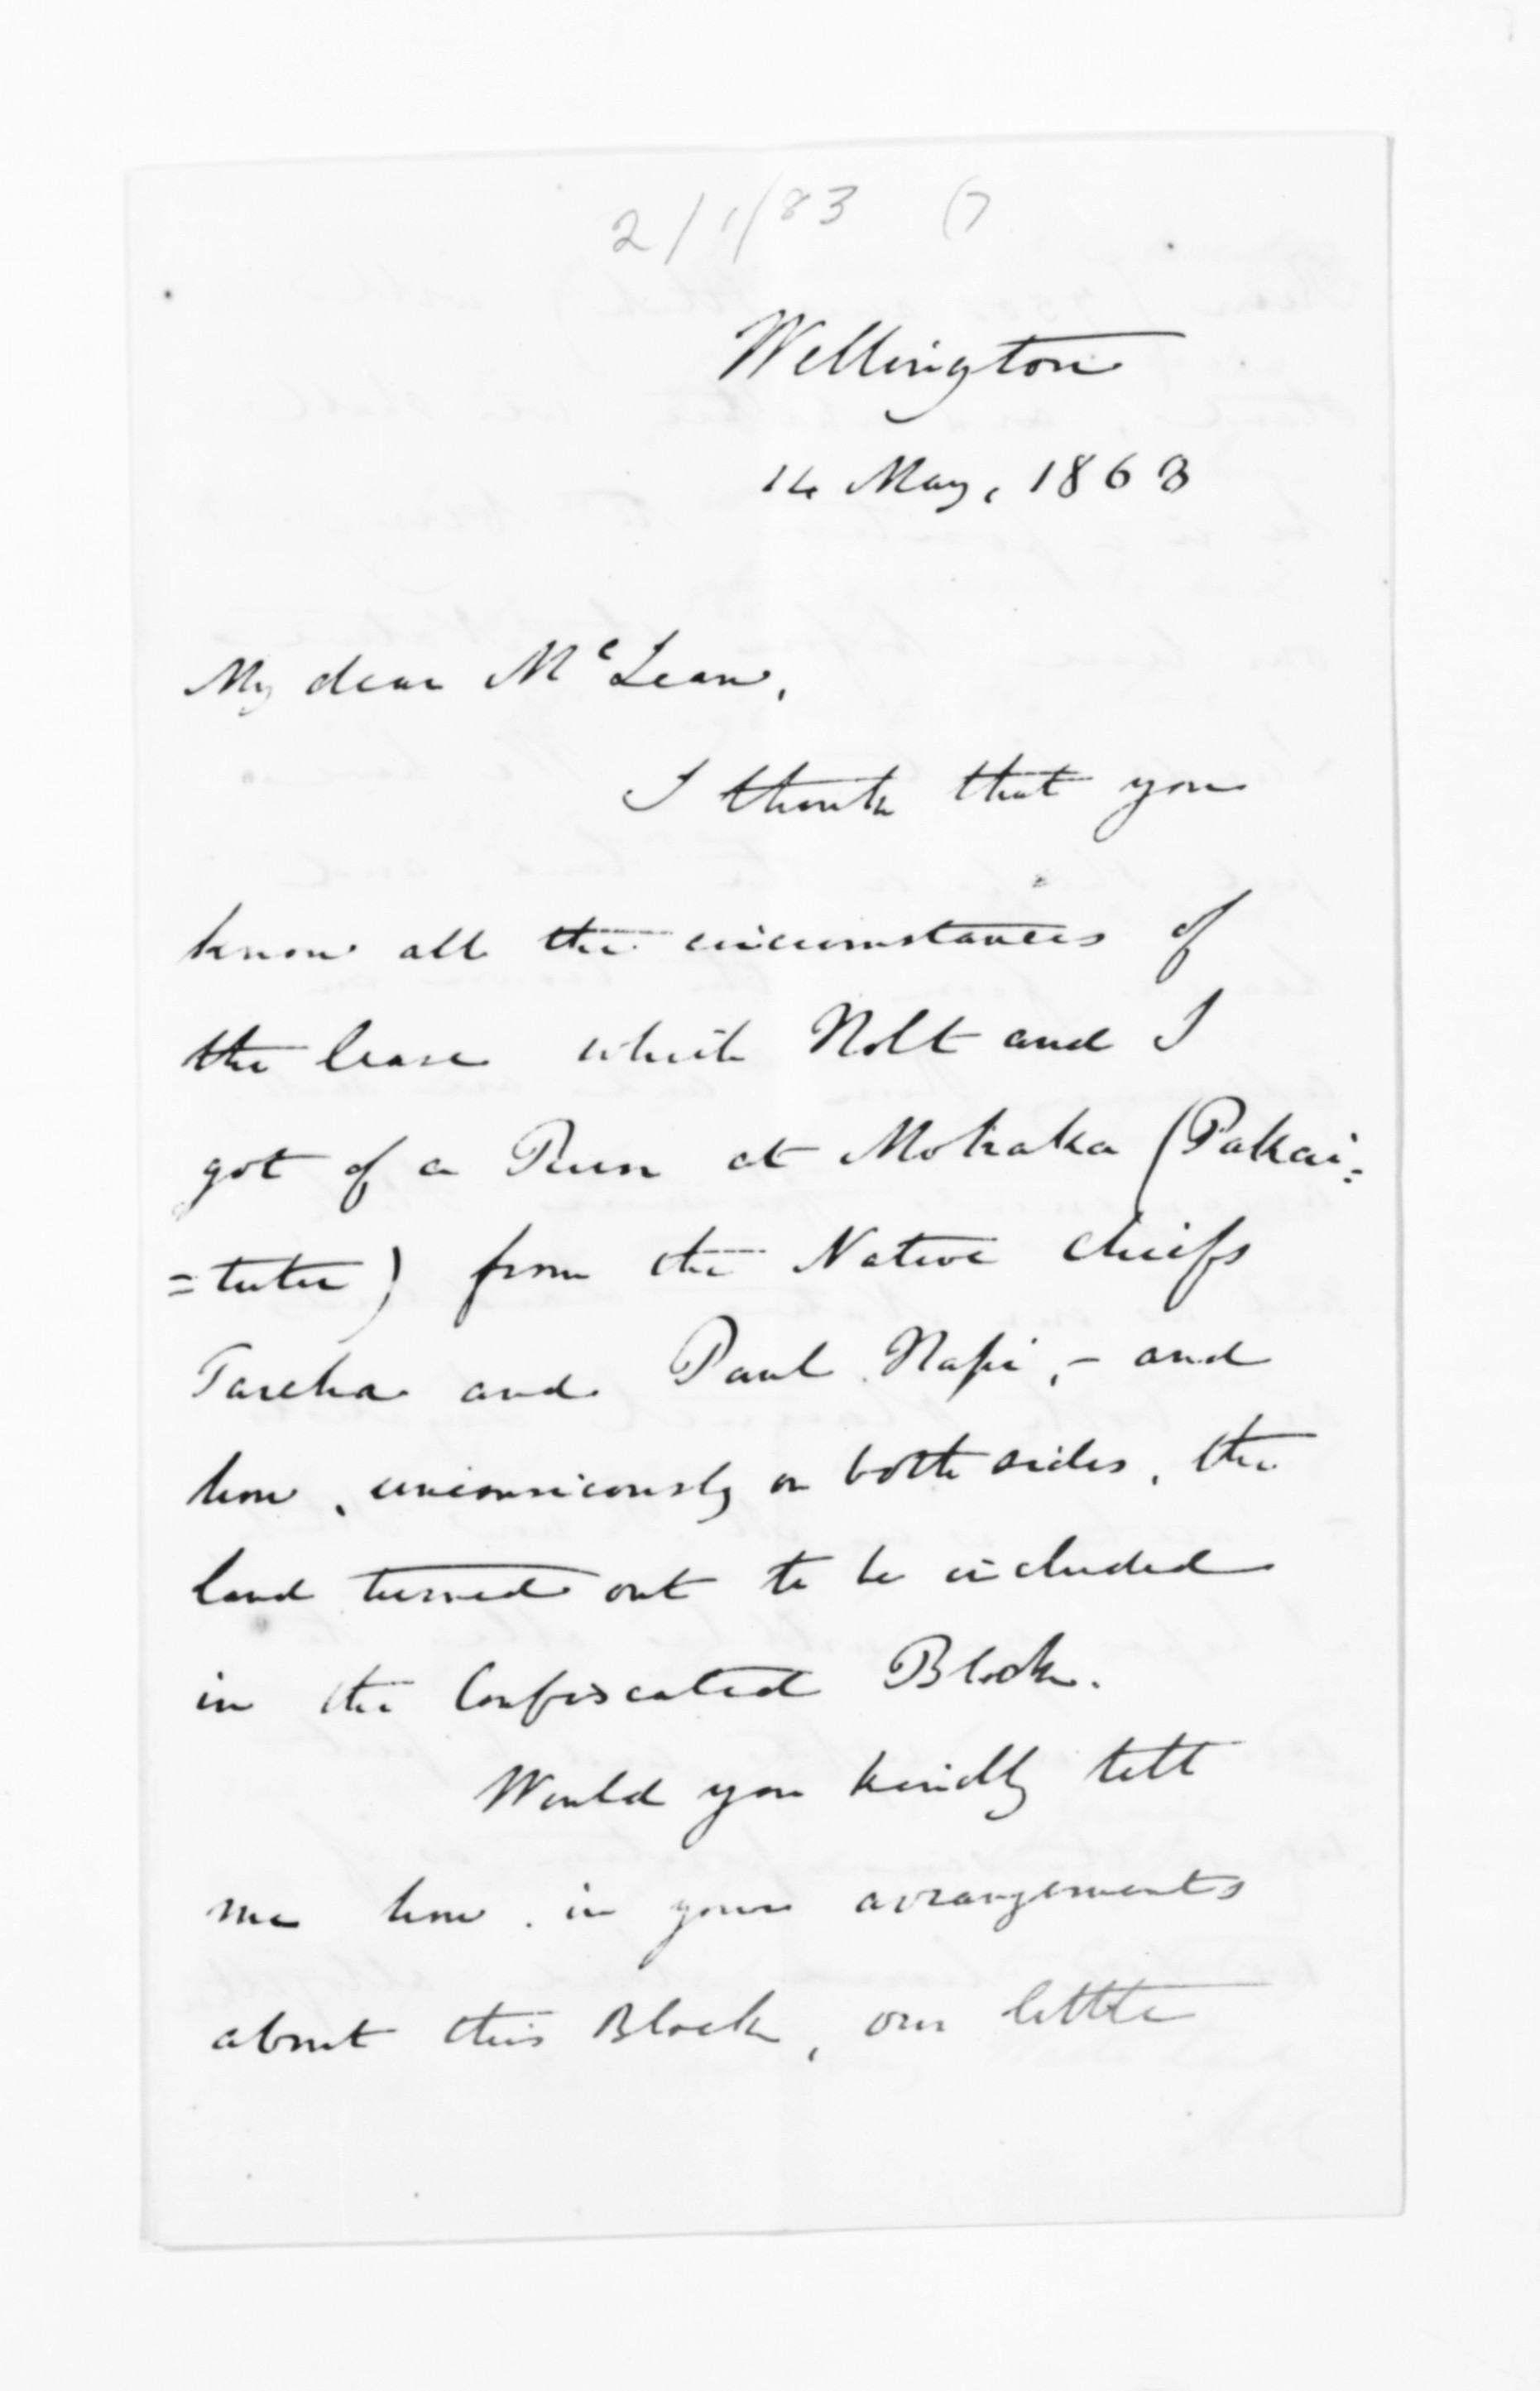 2/1/83 (7
Wellington
14 May, 1868
My dear McLean,
I think that you
know all the circumstances of
the lease which Nolt and I
got of a Run at Mohaka (Pakai=
=tutu) from the Native Chiefs
Tareha and Paul Napi, - and
how, unconsciously on both sides, the
land turned out to be included
in the Confiscated Block.
Would you kindly tell
me how, in your arrangements
about this Block, our little